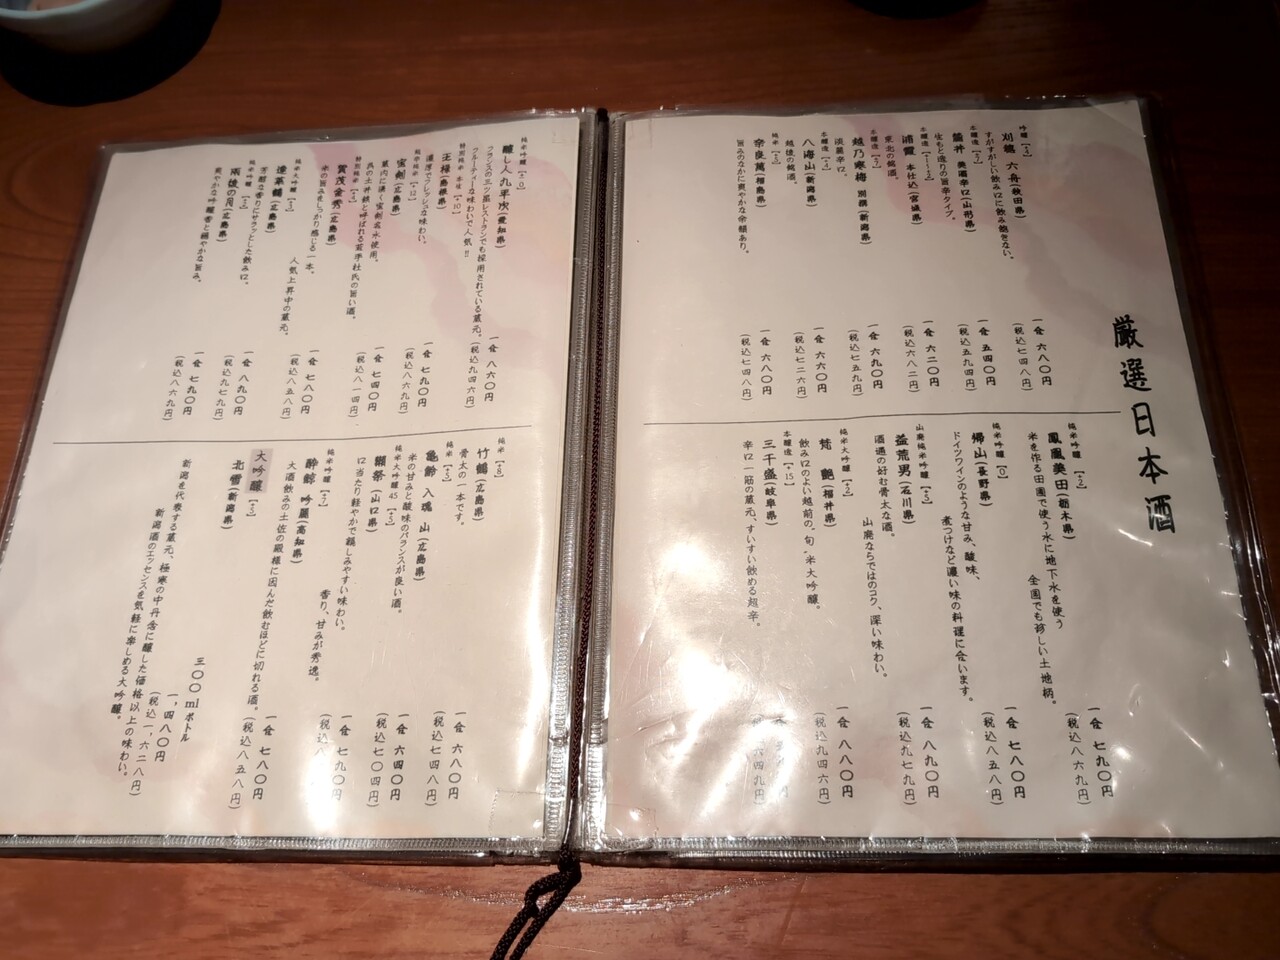 厳選日本酒
吟醸
刈穂 六舟(秋田県)
すがすがしい飲み口に飲み飽きない。
一合 六八〇円
(税込七四八円)
本醸造
美酒辛口(山形県)
生もと造りの旨辛タイプ。
一合 五四〇円
(税込五九四円)
本醸造
浦霞 本仕込(宮城県)
東北の銘酒。
一合 六二〇円
(税込六八二円)
本醸造
越乃寒梅 別撰(新潟県)
淡麗辛口。
一合 六九〇円
(税込七五九円)
本醸造
八海山(新潟県)
越後の銘酒。
一合 六六〇円
(税込七二六円)
純米
奈良萬(福島県)
旨みのなかに爽やかな余韻あり。
一合 六八〇円
(税込七四八円)
純米吟醸
鳳凰美田(栃木県)
米を作る田圃で使う水に地下水を使う
全国でも珍しい土地柄。
一合 七九〇円
(税込八六九円)
純米吟醸 [0]
帰山(長野県)
ドイツワインのような甘み、酸味、
煮つけなど濃い味の料理に合います。
一合 七八〇円
(税込八五八円)
山廃純米吟醸
益荒男(石川県)
酒通の好む骨太な酒。
山廃ならではのコク、深い味わい。
一合 八九〇円
(税込九七九円)
純米大吟醸
梵 艶(福井県)
飲み口のよい越前の、旬、米大吟醸。
一合 八六〇円
(税込九四六円)
本醸造 [+15]
三千盛(岐阜県)
辛口一筋の蔵元、すいすい飲める超辛。
純米吟醸 [±0]
醸し人九平次(愛知県)
フランスの三ツ星レストランでも採用されている蔵元。
フルーティーな味わいで人気!!
一合 八六〇円
(税込九四六円)
特別純米 [+10]
王祿(島根県)
濃厚でフレッシュな味わい。
一合 七九〇円
(税込八六九円)
純米吟醸
宝剣(広島県)
蔵内に湧く宝剣名水使用。
呉の土井鉄と呼ばれる若手杜氏の旨い酒。
一合 七四〇円
(税込八一四円)
特別純米
賀茂金秀(広島県)
米の旨みをしっかり感じる一本。
人気上昇中の蔵元。
一合 七八〇円
(税込八五八円)
純米大吟醸
蓬莱鶴(広島県)
芳醇な香りにサラッとした飲み口。
一合 八九〇円
(税込九七九円)
純米吟醸
雨後の月(広島県)
爽やかな吟醸香と穏やかな旨み。
一合 七九〇円
(税込八六九円)
純米 [+8]
竹鶴(広島県)
骨太の一本です。
一合 六八〇円
(税込七四八円)
純米
亀齢 入魂 山(広島県)
米の甘みと酸味のバランスが良い酒。
一合 六四〇円
(税込七〇四円)
純米大吟醸45
獺祭(山口県)
口当たり軽やかで親しみやすい味わい。
香り、甘みが秀逸。
一合 七九〇円
純米吟醸
酔鯨 吟麗(高知県)
大酒飲みの土佐の殿様に因んだ飲むほどに切れる酒。
一合 七八〇円
(税込八五八円)
大吟醸
北雪(新潟県)
新潟を代表する蔵元、極寒の中丹念に醸した価格以上の味わい。
新潟酒のエッセンスを気軽に楽しめる大吟醸。
三〇〇mlボトル
一、四八〇円
(税込一、六二八円)